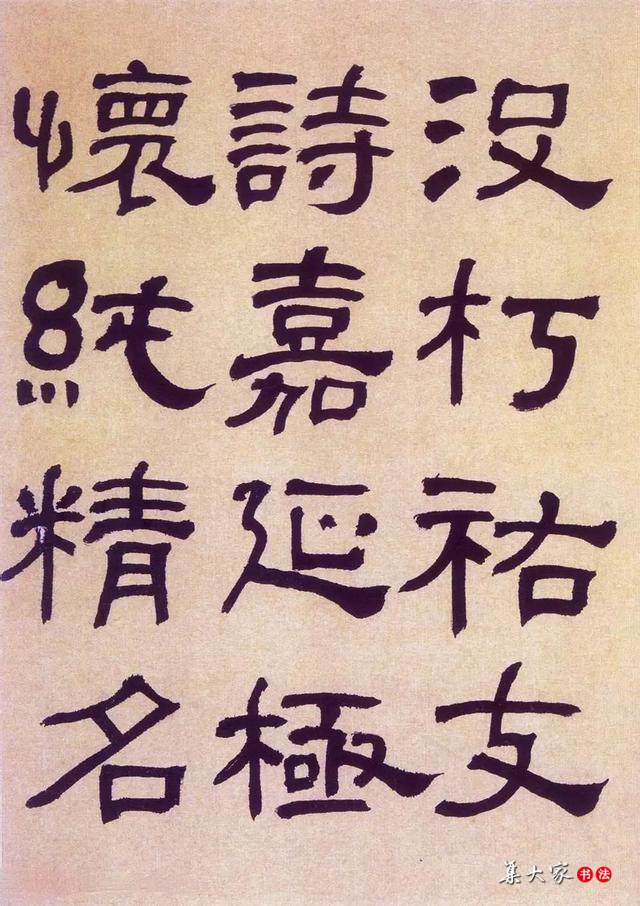 没朽祐支
詩嘉延極
懷純精名
集大家书法